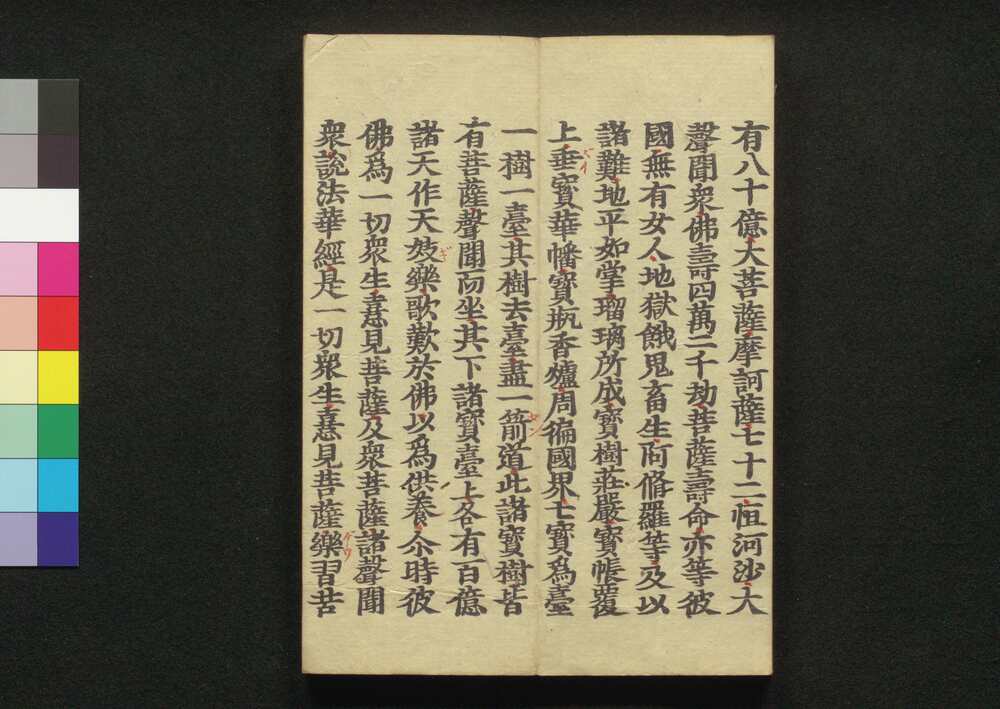 有八十億大菩薩摩訶薩七十二恒河沙大
聲聞衆佛壽四萬二千劫菩薩壽命亦等彼
國無有女人地獄餓鬼畜生阿脩羅等及以
諸難地平如掌瑠璃所成寶樹莊嚴寶帳覆
上垂寶華幡寶瓶香爐周徧國界七寶爲臺
一樹一臺其樹去臺盡一箭道此諸寶樹皆
有菩薩聲聞而坐其下諸寶臺上各有百億
諸天作天妓樂歌歎於佛以爲供養尒時彼
佛爲一切衆生憙見菩薩及衆菩薩諸聲聞
衆說法華經是一切衆生憙見菩薩樂習苦